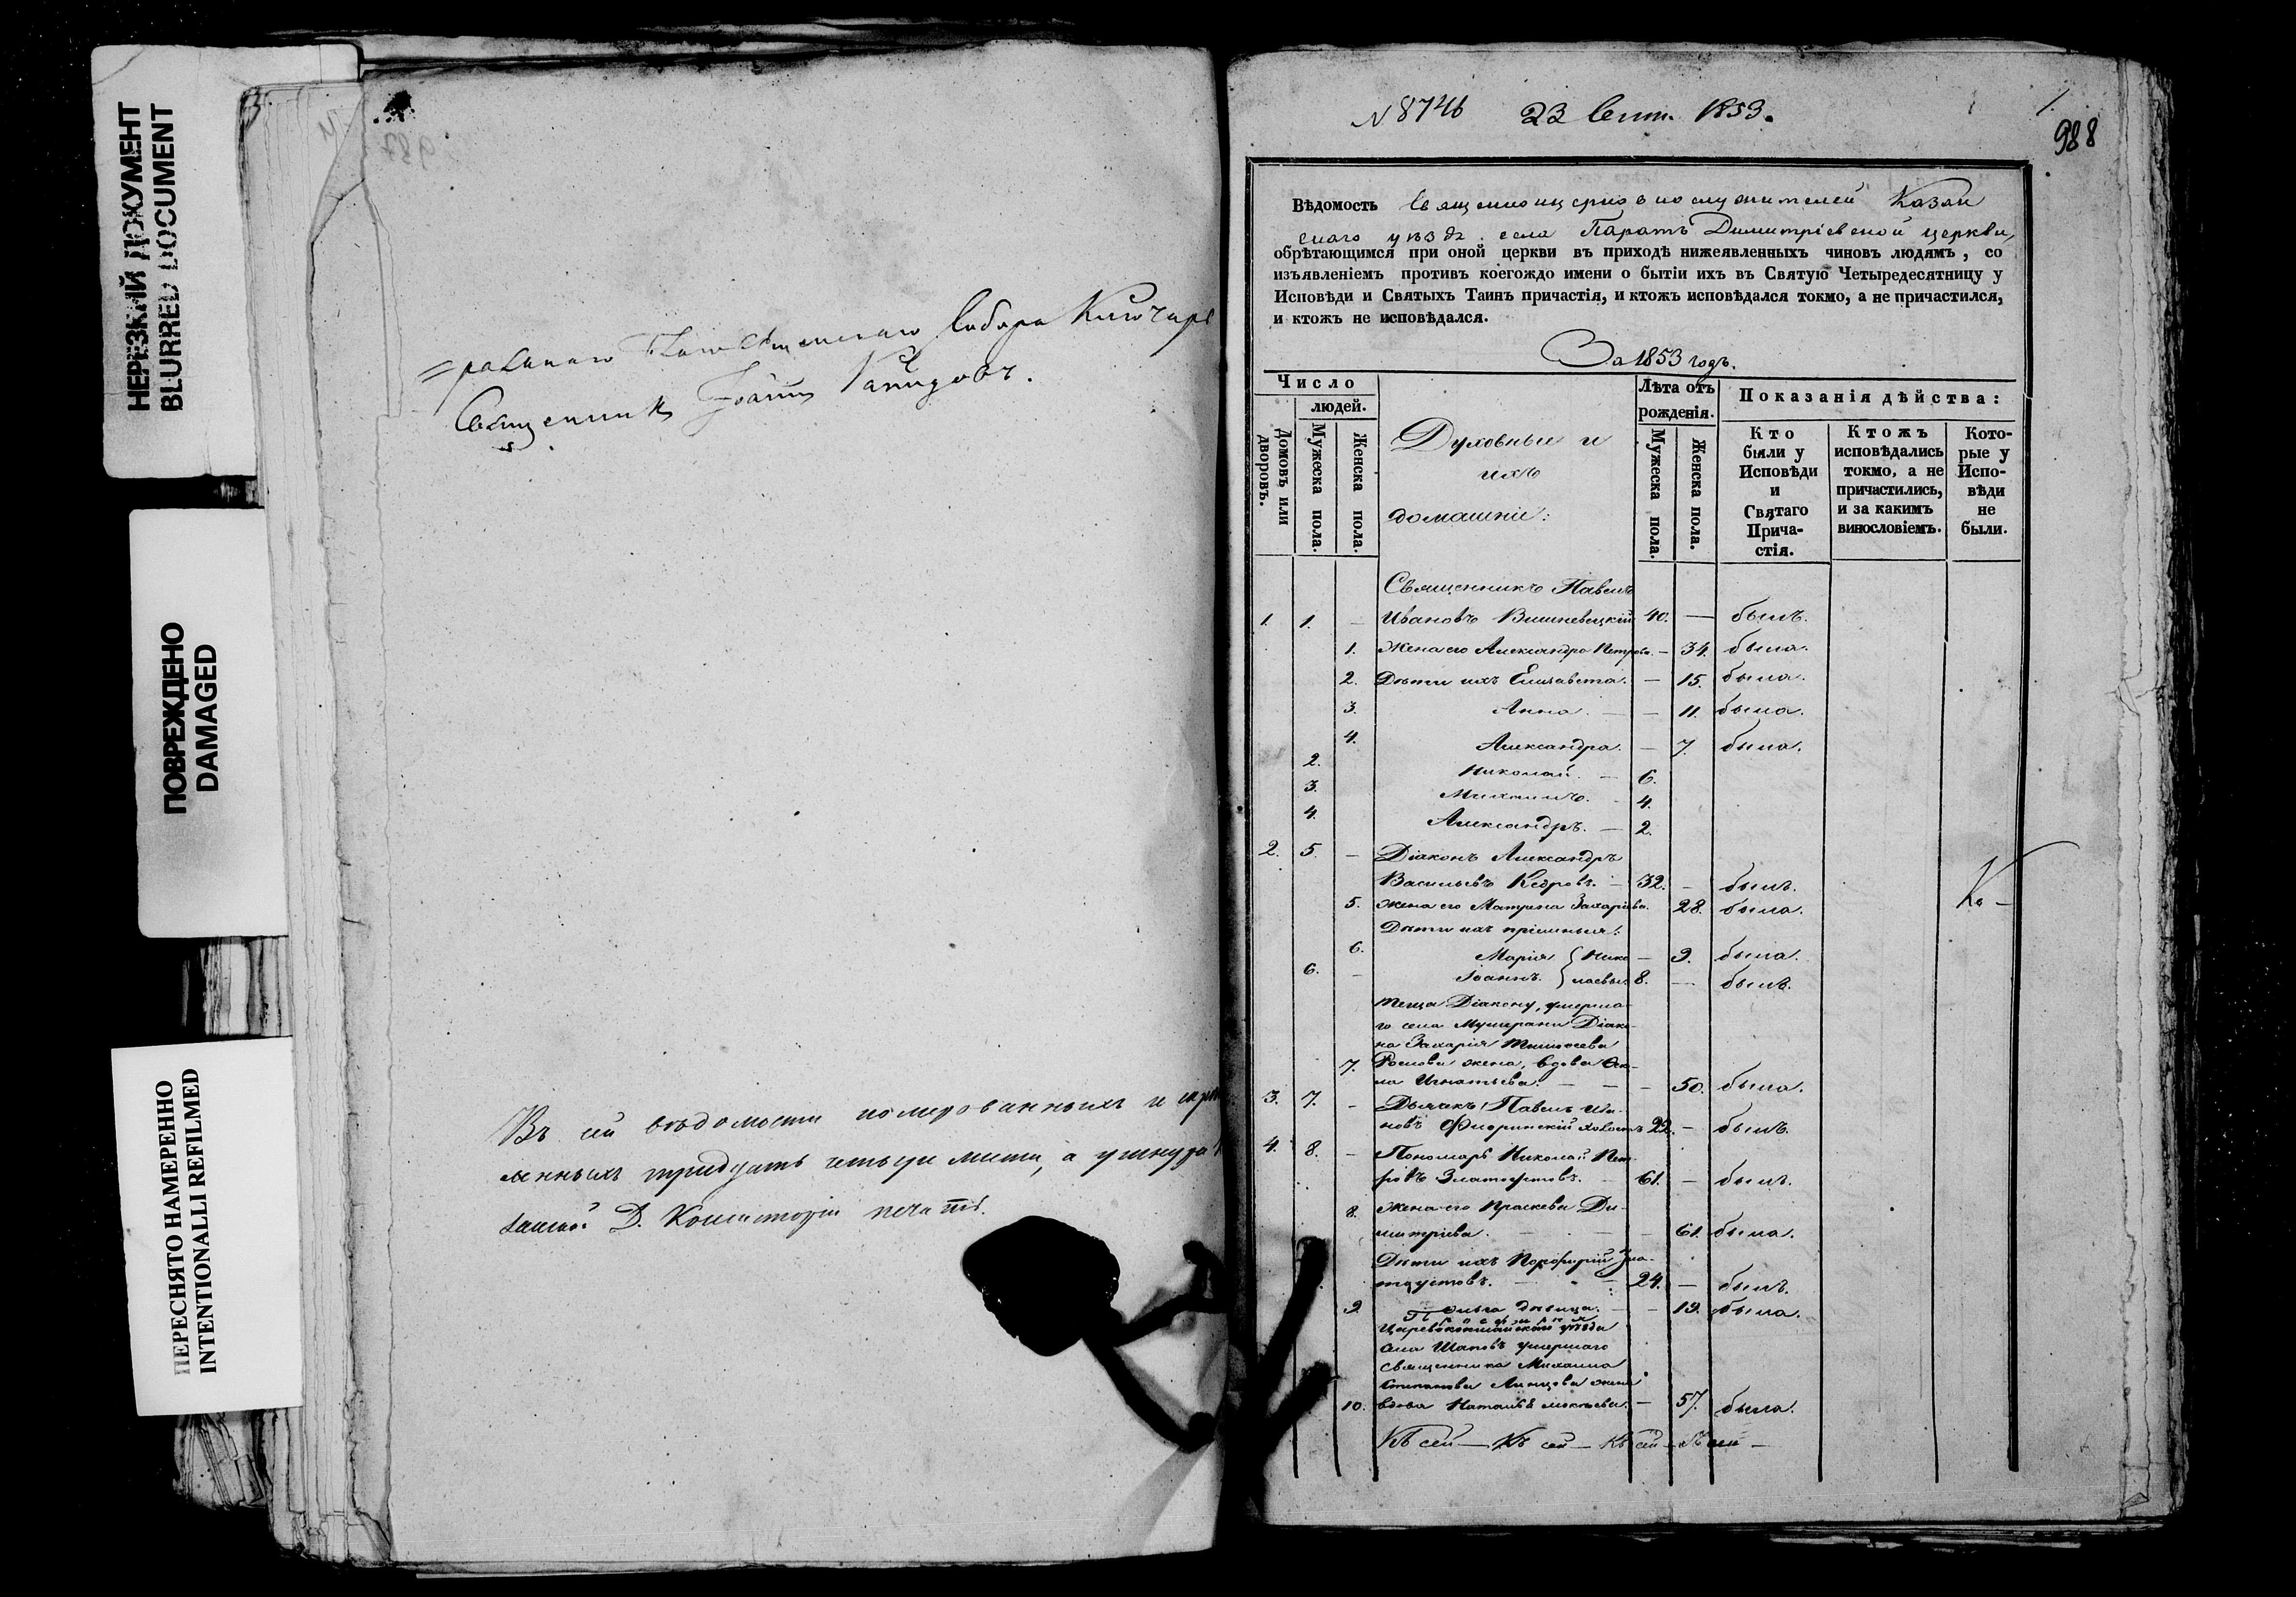 НЕРЕЗКИЙ ДОКУМЕНТ
BLURRED DOCUMENT
ПОВРЕЖДЕНО
DAMAGED
ПЕРЕСНЯТО НАМЕРЕННО
INTENTIONALLI REFILMED
Собора
Священникъ Іоаннъ
Въ сей вѣдомости нумерованныхъ и скрѣп
ленныхъ тридцать четыре листа, а
Д. Консисторіи печать.
N 8746 23 Сент. 1853.
1.
988
Вѣдомость Священноцерковнослужителей Казан
скаго уѣзда села Паратъ Димитріевской церкви,
обрѣтающимся при оной церкви въ приходѣ нижеявленныхъ чиновъ людямъ, со
изъявленіемъ противъ коегождо имени о бытіи ихъ въ Святую Четыредесятницу у
Исповѣди и Святыхъ Таинъ причастія, и ктожъ исповѣдался токмо, а не причастился,
и ктожъ не исповѣдался.
За 1853 годъ.
Число
людей.
Домовъ или дворовъ.
Мужеска пола.
Женска пола.
Духовные и
ихъ
домашніе:
Лѣта отъ
рожденія.
Мужеска пола.
Женска пола.
Показанія дѣйства:
Кто
были у
Исповѣди
и
Святаго
Прича-
стія.
Ктожъ
исповѣдались
токмо, а не
причастились,
и за какимъ
винословіемъ.
Кото-
рые у
Испо-
вѣди
не
были.
Священникъ Павелъ
1. 1. — Ивановъ Вишневецкій 40. — былъ.
1. Жена его Александра Петрова. — 34. была.
2. Дѣти ихъ Елизавета. — 15. была.
3. Анна. — — 11. была.
4. Александра. — 7. была.
2. Николай. — 6.
3. Михаилъ. — 4.
4. Александръ. — 2.
2. 5. — Діаконъ Александръ
Васильевъ Кедровъ. — 32. — былъ.
5. Жена его Матрена Захарьева. 28. была.
Дѣти ихъ пріемныя:
6. Марія } Нико — 9. была.
6. — Іоаннъ } лаевы 8. — былъ.
Теща Діакону, умерша-
го села Мушерани Діако-
на Захарія Тимоѳеева
7. жена, вдова Ѳек-
ла Игнатьева. — — — 50. была.
3. 7. — Дьячекъ Павелъ Ива-
новъ холостъ 22. — былъ.
4. 8. — Пономарь Николай Пет-
ровъ Златоустовъ. — 61. — былъ.
8. Жена его Праскева Ди-
митріева. — — — 61. была.
Дѣти ихъ Порфирій Зла-
тоустовъ. — — 24. — былъ.
9. Ольга дѣвица. — — 19. была.
Просфирня
Царевококшайскаго уѣзда
села Шаповъ умершаго
священника Михаила
жена
10. вдова Наталья Алексѣева. — 57. была.
Къ сей — Къ сей — Къ сей — Къ сей —